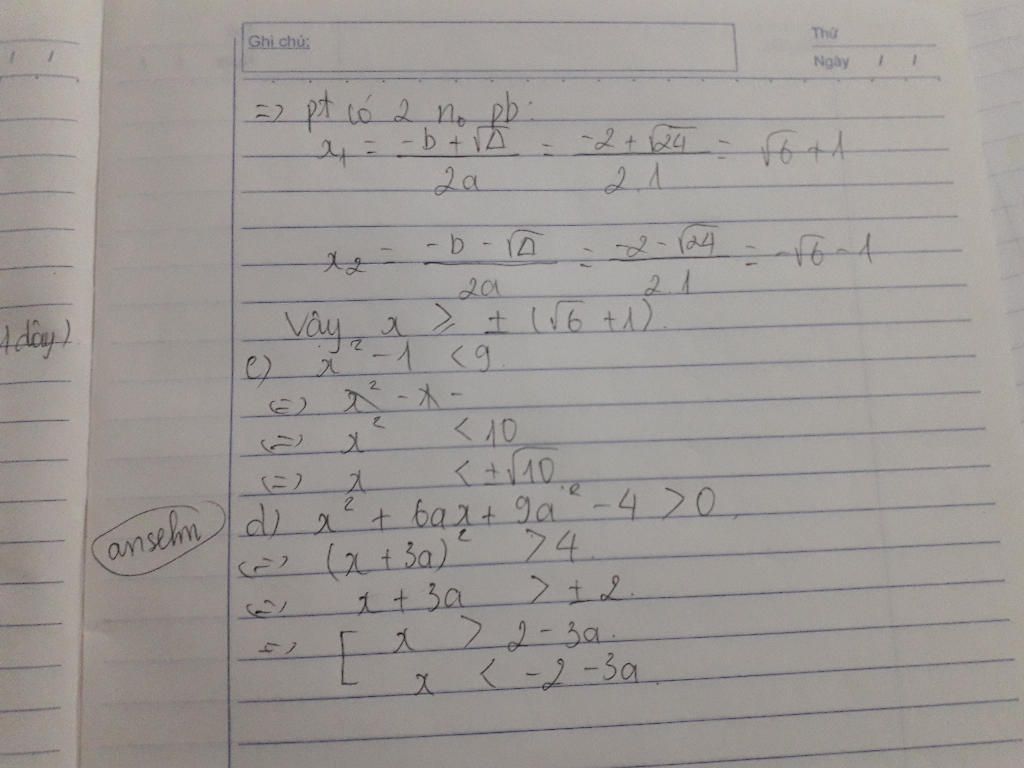 Ghi chú:
Thứ
Ngày / /
=> pt có 2 n₀ pb:
x₁ = (-b + √Δ)/2a = (-2 + √24)/2.1 = √6 + 1
x₂ = (-b - √Δ)/2a = (-2 - √24)/2.1 = -√6 - 1
1 dây)
Vậy x ⩾ ± (√6 + 1).
c) x² - 1 < 9.
(=) x² - x -
(=) x² < 10
(=) x < ±√10.
d) x² + 6ax + 9a² - 4 > 0.
anselm
(=) (x + 3a)² > 4.
(=) x + 3a > ± 2.
=> [ x > 2 - 3a.
x < -2 - 3a.